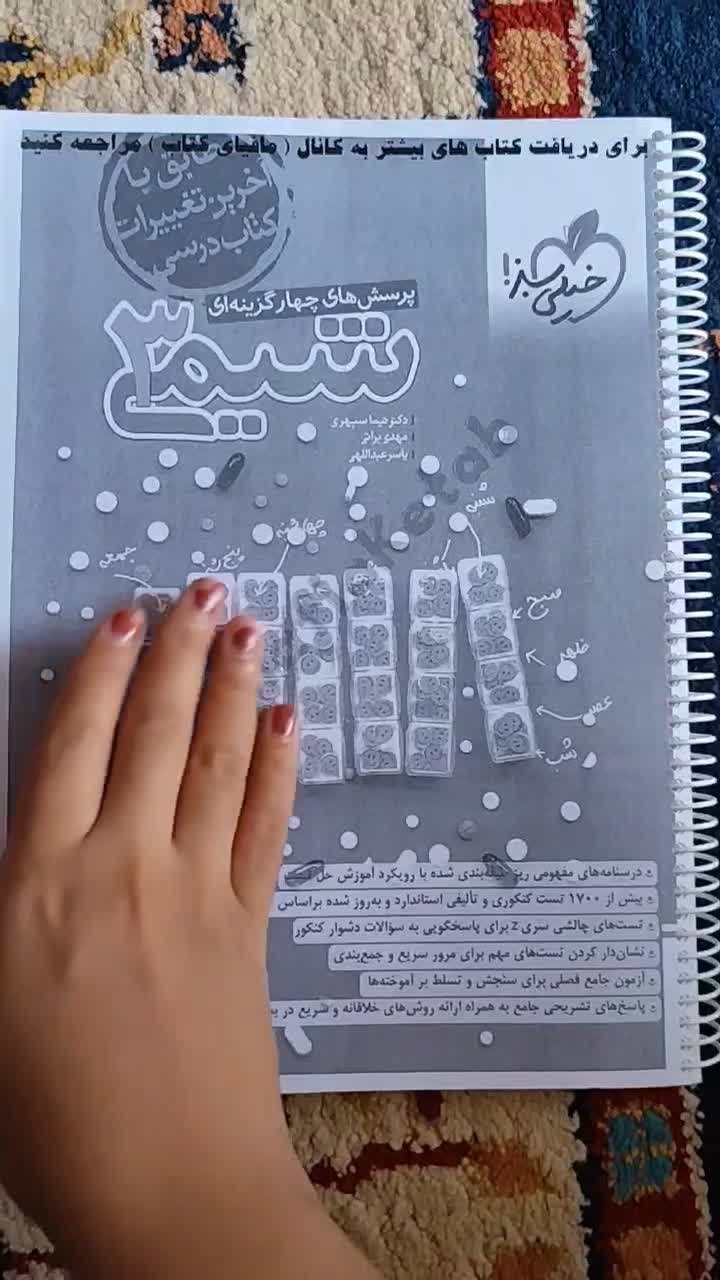 برای دریافت کتاب های بیشتر به کانال ( مافیای کتاب ) مراجعه کنید
با
آخرین تغییرات
کتاب درسی
خیلی سبز!
پرسش‌های چهارگزینه‌ای
شیمی ۳
دکتر نیما سپهری
مهدی براتی
یاسر عبداللهی
Ketab
شنبه
چهارشنبه
پنج
جمعه
صبح
ظهر
عصر
شب
درسنامه‌های مفهومی ریز طبقه‌بندی شده با رویکرد آموزش حل تست
بیش از ۱۷۰۰ تست کنکوری و تألیفی استاندارد و به‌روز شده براساس
تست‌های چالشی سری z برای پاسخگویی به سؤالات دشوار کنکور
نشان‌دار کردن تست‌های مهم برای مرور سریع و جمع‌بندی
آزمون جامع فصلی برای سنجش و تسلط بر آموخته‌ها
پاسخ‌های تشریحی جامع به همراه ارائه روش‌های خلاقانه و سریع در